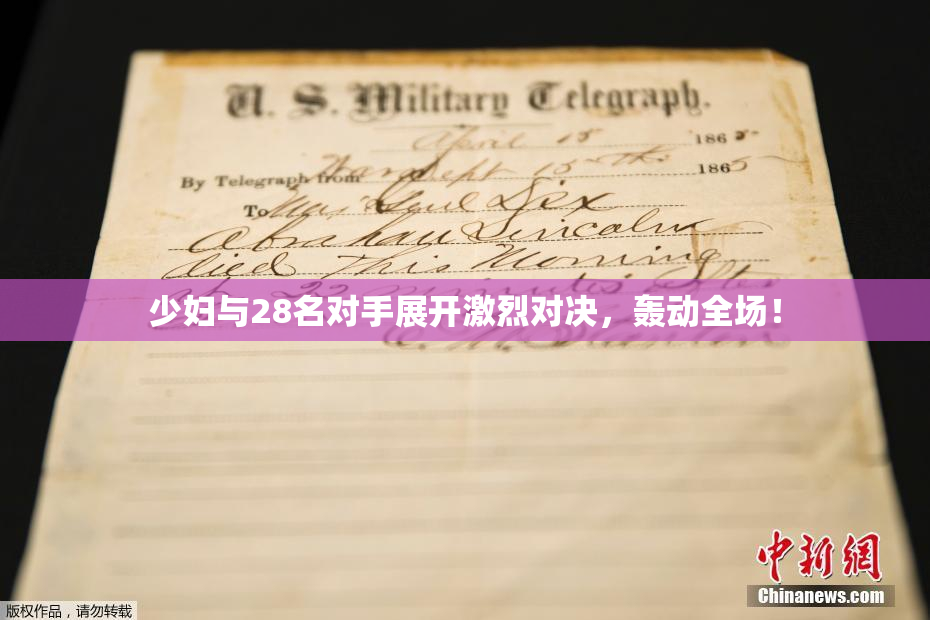 U. S. Military Telegraph.
April 15 1865
By Telegraph from War Dept 15th 1865
To Maj Genl Dix
Abraham Lincoln
died This Morning
at 22 minutes after
少妇与28名对手展开激烈对决，轰动全场！
E. M. Stanton
中新网
Chinanews.com
版权作品，请勿转载